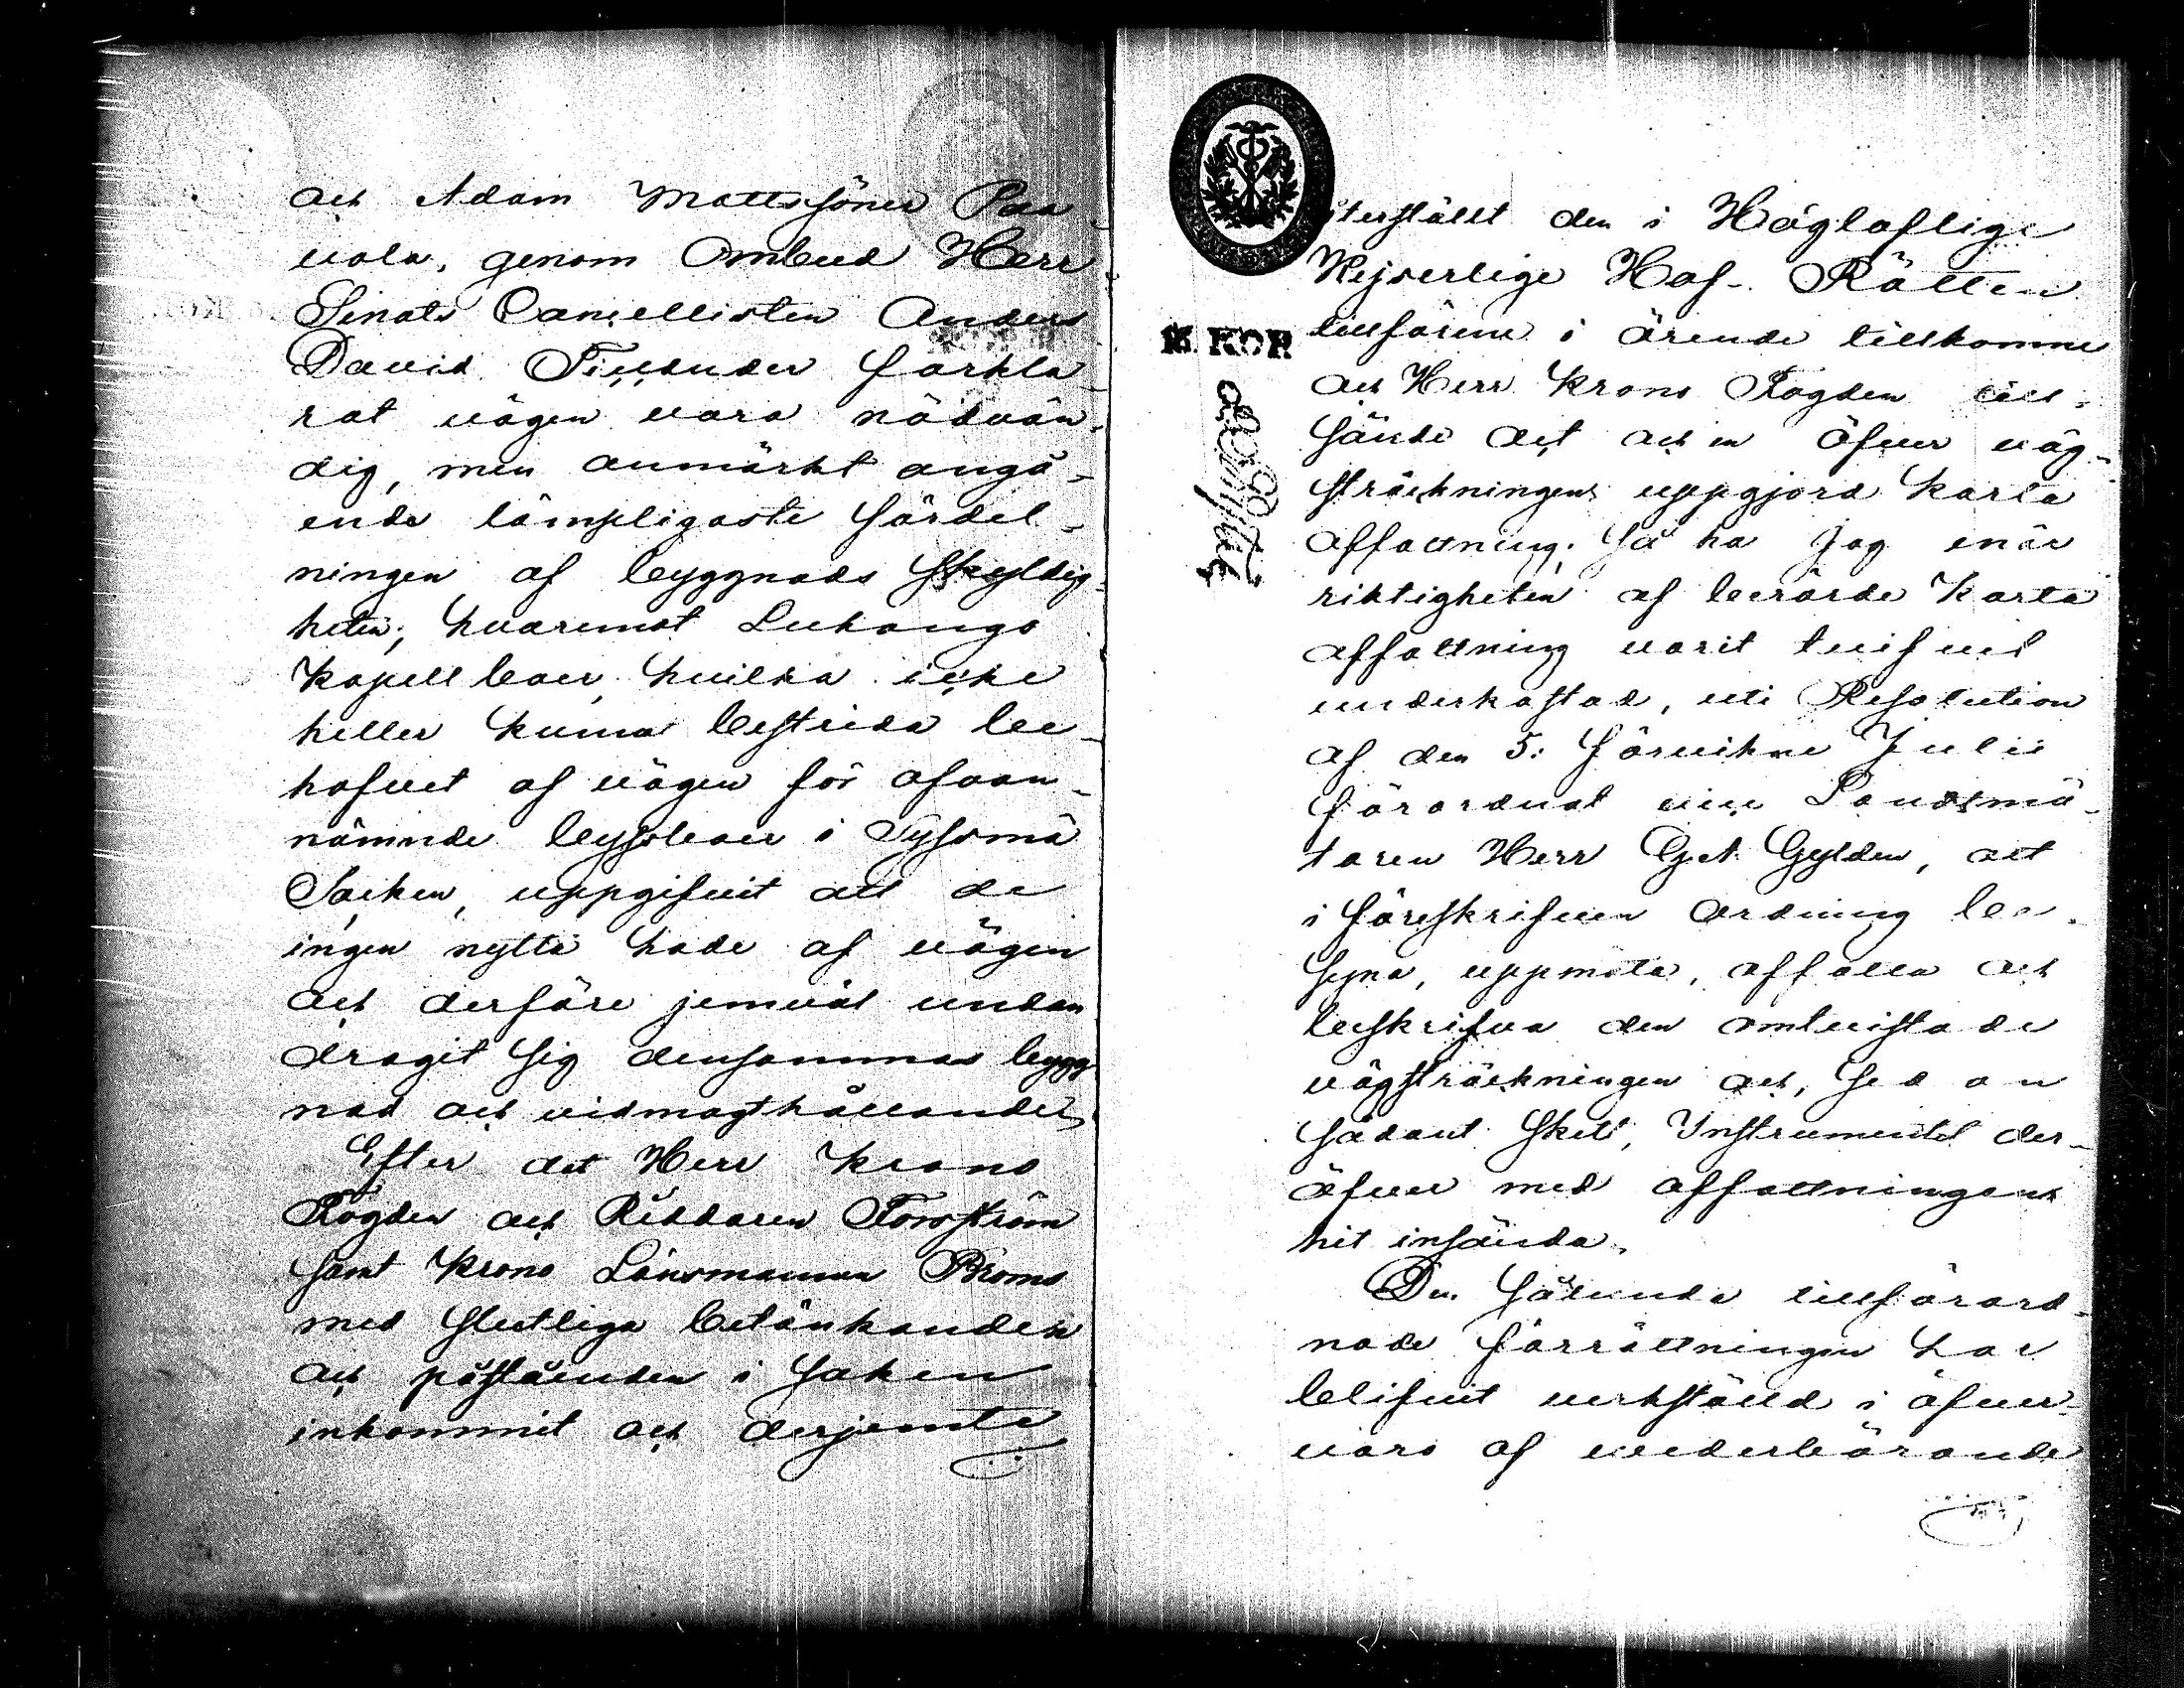 och Adam Mattssöner Paa-
vola, genom Ombud Herr
Senats Cancellisten Anders
David förkla-
rat vägen vara nödvän-
dig, men anmärkt angå-
ende lämpligaste fördel-
ningen af byggnads skyldig-
heten; hvaremot Luhango
Kapellboer, hvilka icke
heller kunna bestrida be-
hofvet af vägen för ofvan-
nämnde byssboer i Sysmä
Socken, uppgifvit att de
ingen nytta hade af vägen
och derföre jemväl undan
dragit sig densammas bygg
nad och vidmagthållande,
Efter det Herr Krono
Fogden och Riddaren Forsström
samt Krono Länsmannen Broms
med slutliga betänkanden
och påståenden i saken
inkommit och derjemte
återstäldt den i Höglofliga
Kejserliga Hof-Rätten
tillförene i ärende tillkomne
och Herr Krono Fogden till-
sände det och en öfver väg-
sträckningen uppgjord karta
affattning; så har Jag enär
riktigheten af berörde Karta
affattning varit tvifvel
underkastad, uti Resolution
af den 5: förvikne Julii
förordnat vice Landtmä-
taren Herr Gylden, att
i föreskrifven Ordning be-
syna, uppmäta, affatta och
beskrifva den omtvistade
vägsträckningen och, sedan
sådant skett, Instrumentet der-
öfver med affattningen
hit insända.
Den sålunda tillförord-
nade förrättningen har
blifvit verkställd i öfver-
varo af vederbörande